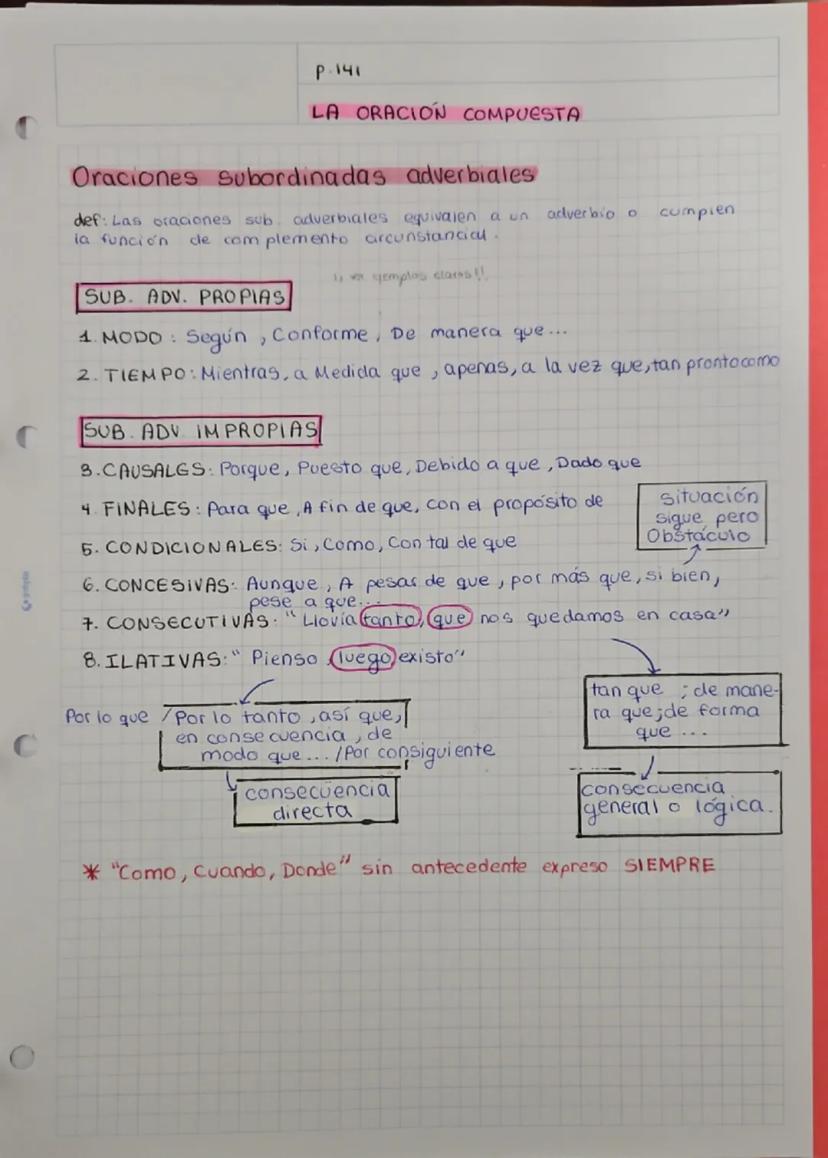 P. 141
LA ORACIÓN COMPUESTA
Oraciones subordinadas adverbiales
def: Las oraciones sub. adverbiales equivalen a un adverbio o cumplen
la función de complemento circunstancial.
ejemplos claros!!
SUB. ADV. PROPIAS
1. MODO: Según, Conforme, De manera que...
2. TIEMPO: Mientras, a Medida que, apenas, a la vez que, tan pronto como
SUB. ADV. IMPROPIAS
3. CAUSALES: Porque, Puesto que, Debido a que, Dado que
4. FINALES: Para que, A fin de que, con el propósito de
situación
sigue pero
Obstáculo
5. CONDICIONALES: Si, Como, Con tal de que
6. CONCESIVAS: Aunque, A pesar de que, por más que, si bien,
pese a que...
7. CONSECUTIVAS: "Llovía tanto, que nos quedamos en casa"
8. ILATIVAS: "Pienso, luego existo"
Por lo que / Por lo tanto, así que,
en consecuencia, de
modo que... / Por consiguiente
consecuencia
directa
tan que ; de mane-
ra que; de forma
que ...
consecuencia
general o lógica.
* "Como, Cuando, Donde" sin antecedente expreso SIEMPRE